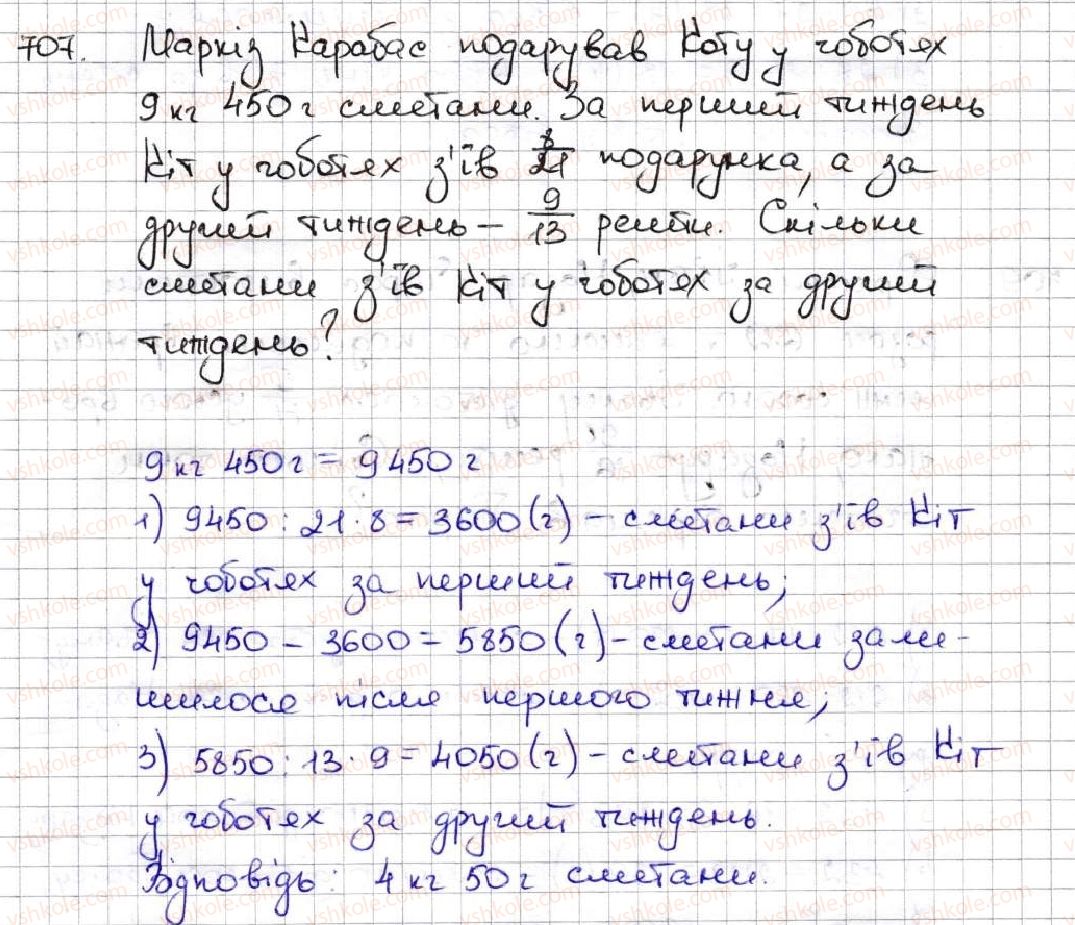 707. Маркіз Карабас подарував Коту у чоботях
9 кг 450 г сметани. За перший тиждень
Кіт у чоботях з'їв 8/21 подарунка, а за
другий тиждень – 9/13 решти. Скільки
сметани з'їв Кіт у чоботях за другий
тиждень?
9 кг 450 г = 9450 г
1) 9450 : 21 · 8 = 3600 (г) – сметани з'їв Кіт
у чоботях за перший тиждень;
2) 9450 – 3600 = 5850 (г) – сметани зали-
шилося після першого тижня;
3) 5850 : 13 · 9 = 4050 (г) – сметани з'їв Кіт
у чоботях за другий тиждень.
Відповідь: 4 кг 50 г сметани.